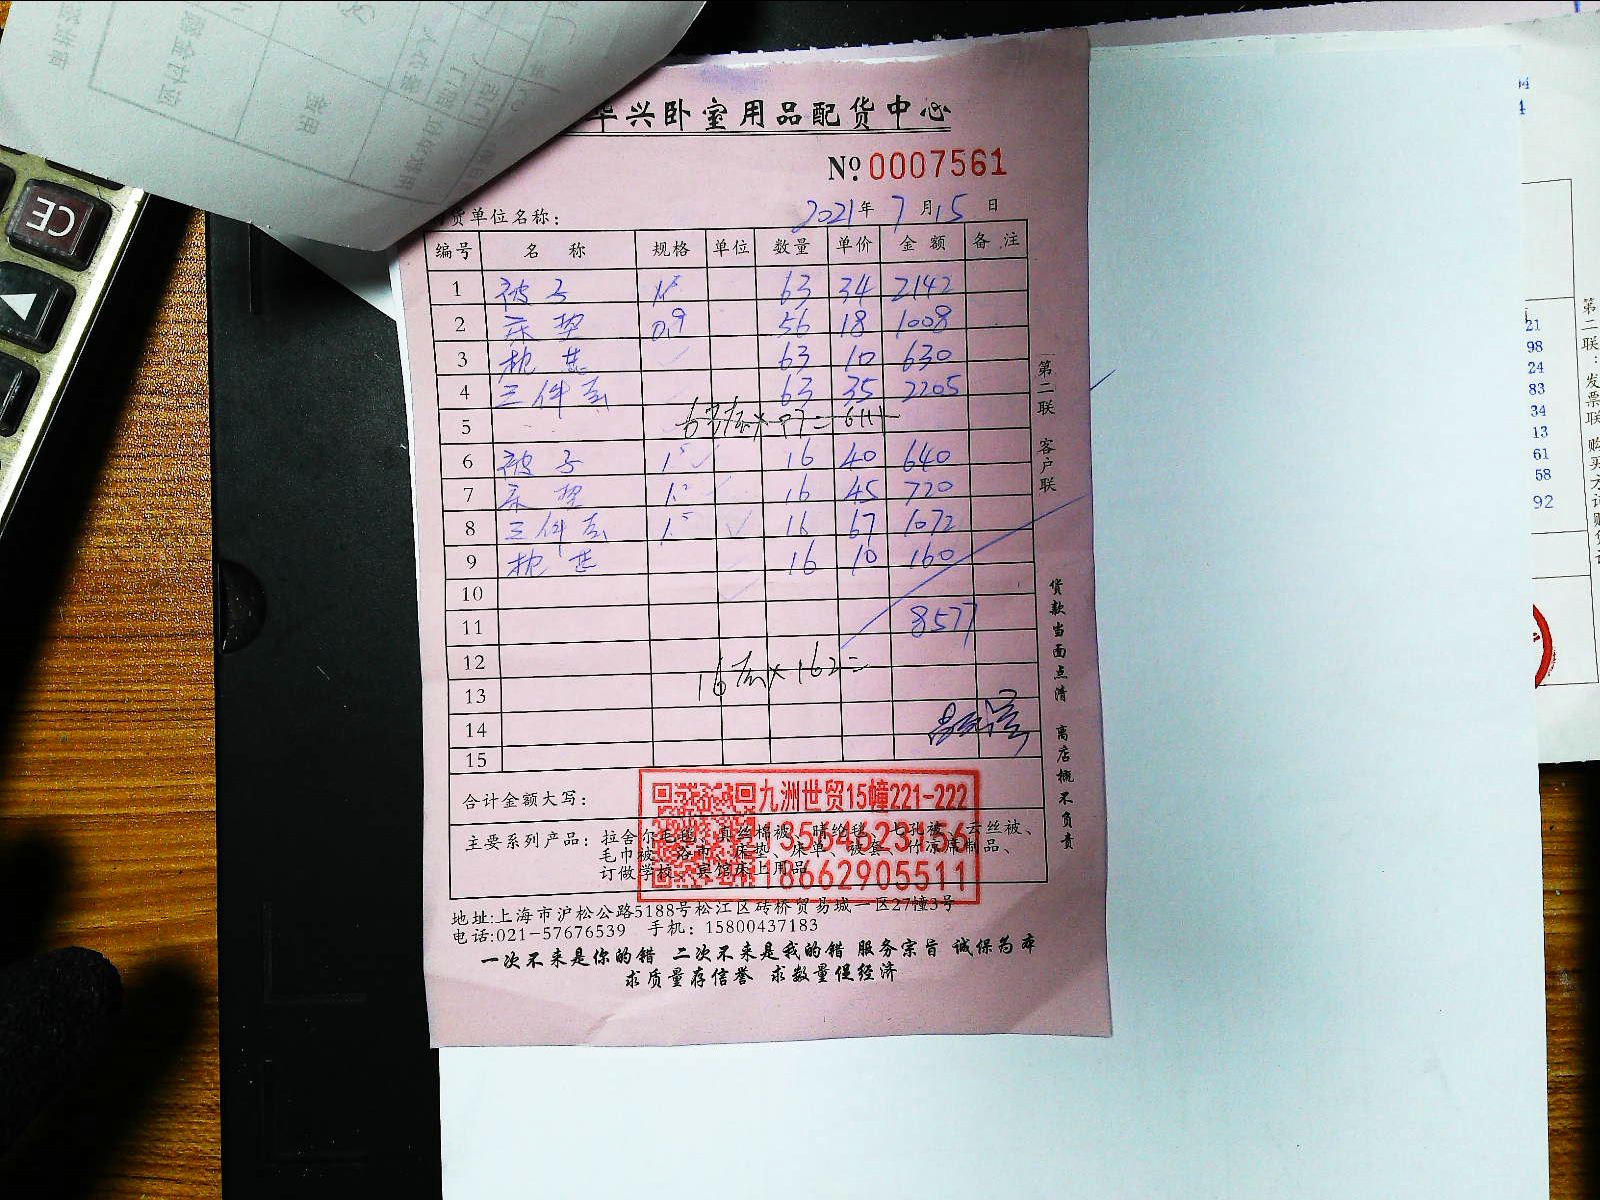 华兴卧室用品配货中心
№ 0007561
货单位名称:
2021年 7月15日
编号 名称 规格 单位 数量 单价 金额 备注
1 被子 1.5 63 34 2142
2 床垫 0.9 56 18 1008
3 枕芯 63 10 630
4 三件套 63 35 2205
5
63套×97=6111
6 被子 1.5 16 40 640
7 床垫 1.2 16 45 720
8 三件套 1.5 16 67 1072
9 枕芯 16 10 160
10
11 8577
12
16套×162=
13
14
15
合计金额大写:
九洲世贸15幢221-222
13564623156
18662905511
主要系列产品: 拉舍尔毛毯、真丝棉被、晴纶毯、七孔被、云丝被、
毛巾被、浴巾、床垫、床单、被套、竹凉席制品、
订做学校、宾馆床上用品
地址:上海市沪松公路5188号松江区砖桥贸易城一区27幢3号
电话:021-57676539 手机: 15800437183
一次不来是你的错 二次不来是我的错 服务宗旨 诚保为本
求质量存信誉 求数量促经济
第二联 客户联
货款当面点清 离店概不负责
CE
21
98
24
83
34
13
61
58
92
第二联:发票联